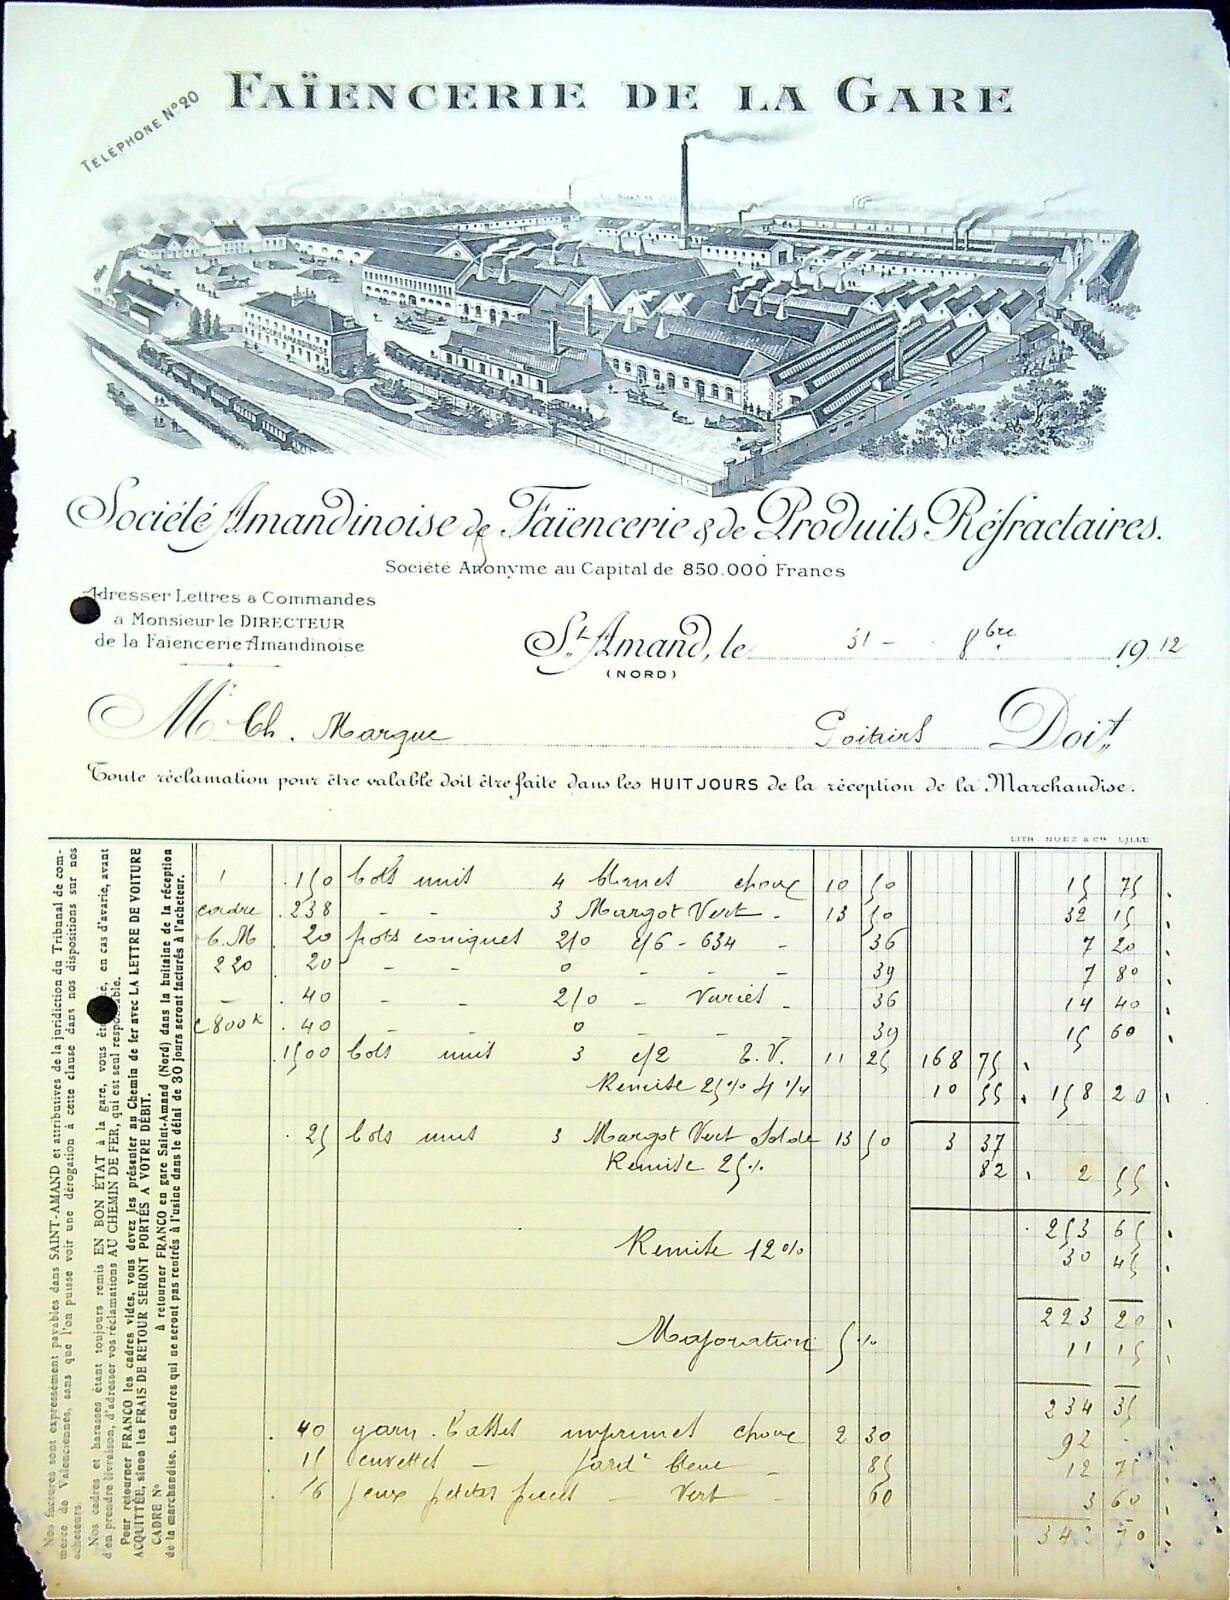 TÉLÉPHONE N° 20
FAÏENCERIE DE LA GARE
AMANDINOISE
Société Amandinoise de Faïencerie & de Produits Réfractaires.
Société Anonyme au Capital de 850.000 Francs
Adresser Lettres & Commandes
à Monsieur le DIRECTEUR
de la Faïencerie Amandinoise
St Amand, le 31 - 8bre 1912
(NORD)
Mr Ch. Marque Poitiers Doit
Toute réclamation pour être valable doit être faite dans les HUIT JOURS de la réception de la Marchandise.
LITH. NUEZ & Cie LILLE
Nos factures sont expressément payables dans SAINT-AMAND et attributives de la juridiction du Tribunal de com-
merce de Valenciennes, sans que l'on puisse voir une dérogation à cette clause dans nos dispositions sur nos
acheteurs.
Nos cadres et harasses étant toujours remis EN BON ÉTAT à la gare, vous en cas d'avarie, avant
d'en prendre livraison, d'adresser vos réclamations AU CHEMIN DE FER, qui est seul responsable.
Pour retourner FRANCO les cadres vides, vous devez les présenter au Chemin de fer avec LA LETTRE DE VOITURE
ACQUITTÉE, sinon les FRAIS DE RETOUR SERONT PORTÉS A VOTRE DÉBIT.
CADRE N° à retourner FRANCO en gare Saint-Amand (Nord) dans la huitaine de la réception
de la marchandise. Les cadres qui ne seront pas rentrés à l'usine dans le délai de 30 jours seront facturés à l'acheteur.
1 150 bols unis 4 blancs choix 10 50 15 75
cadre 238 - - 3 Margot Vert - 13 50 32 15
C.M 20 pots coniques 2/0 c/6 - 634 - 36 7 20
220 20 - - 0 - - - 39 7 80
- 40 - - 2/0 - Variés - 36 14 40
c 800k 40 - - 0 - - - 39 15 60
1500 bols unis 3 c/2 E.V. 11 25 168 75
Remise 25% 10 55 158 20
25 bols unis 3 Margot Vert Solde 13 50 3 37
Remise 25% 82 2 55
253 65
Remise 12% 30 45
223 20
Majoration 5% 11 15
234 35
40 garn. imprimés choix 2 30 92 -
15 cuvettes - bleue - 85 12 75
6 jeux petites pièces - Vert - 60 3 60
342 70